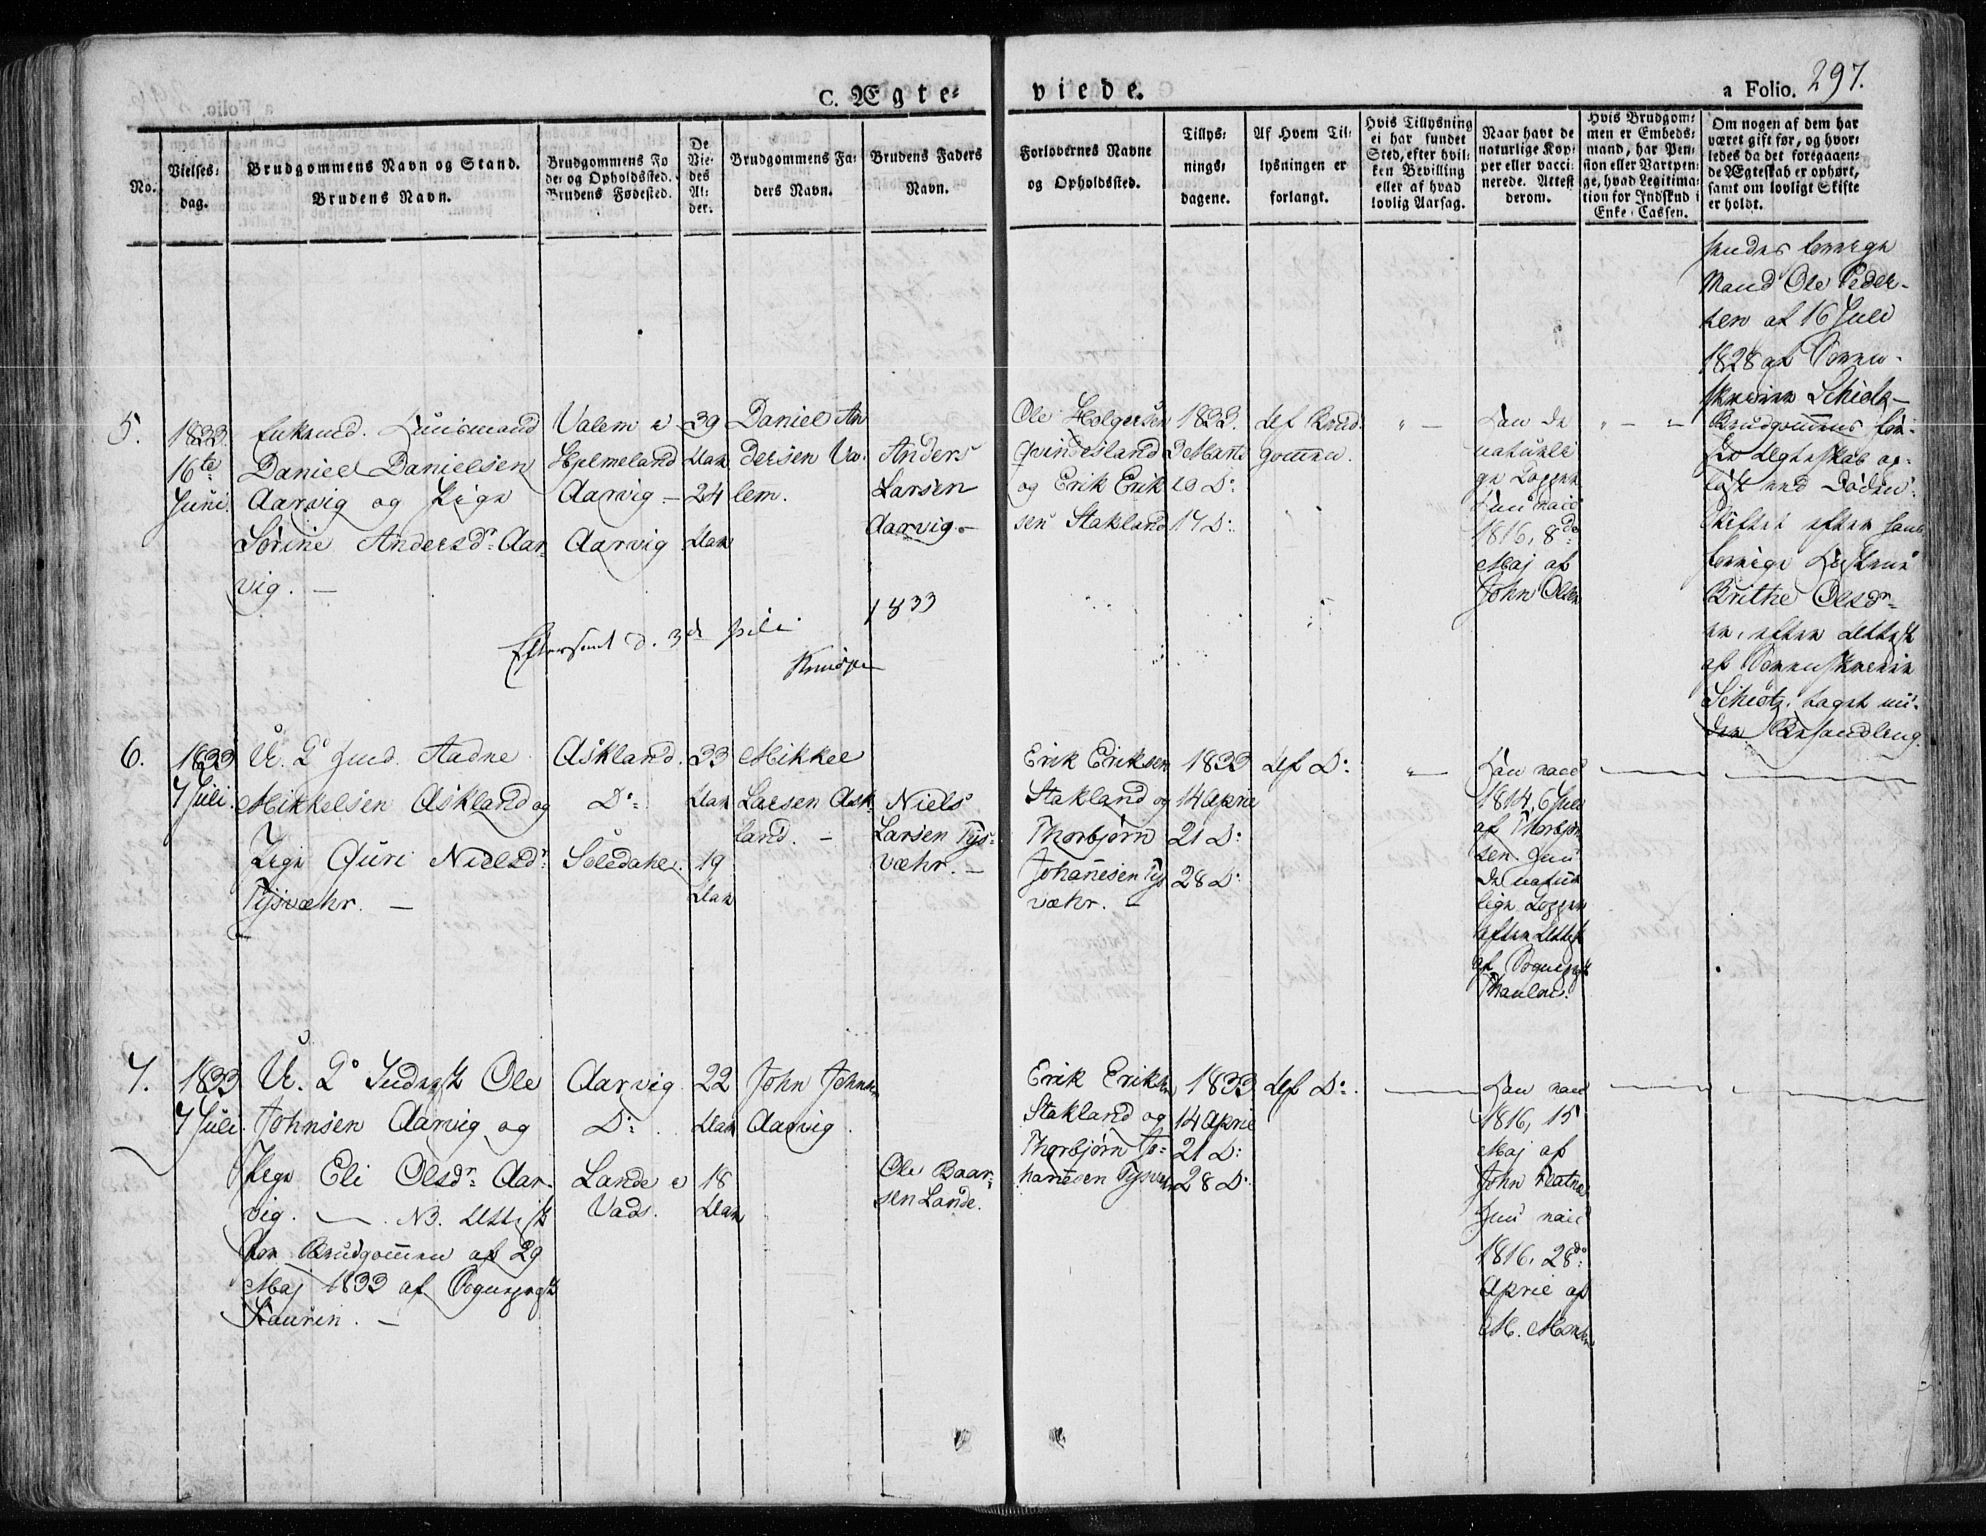 C. Ægte- viede.
a Folio. 297.
No.
Vielses-
dag.
Brudgommens Navn og Stand.
Brudens Navn.
Brudgommens Fø
de- og Opholdssted.
Brudens Fødested.
De
Vie-
des
Al-
der.
Brudgommens Fa-
ders Navn.
Brudens Faders
Navn.
Forlovernes Navne
og Opholdssted.
Tillys-
nings-
dagene.
Af Hvem Til-
lysningen er
forlangt.
Hvis Tillysning
ei har fundet
Sted, efter hvil-
ken Bevilling
eller af hvad
lovlig Aarsag.
Naar havt de
naturlige Kop-
per eller vacci-
nerede. Attest
derom.
Hvis Brudgom-
men er Embeds-
mand, har Pen-
sion eller Vartpen-
ge, hvad Legitima-
tion for Indskud i
Enke-Cassen.
Om nogen af dem har
været gift før, og hvor-
ledes da det foregaaen-
de Ægteskab er ophørt,
samt om lovligt Skifte
er holdt.
hendes forrige
Mand Ole Peder-
sen af 16 Juli
1828 af Soren-
skriver Schiøtz
5.
1833
16te
Juni.
Enkemd. Huusmand
Daniel Danielsen
Aarvig og Pige
Sørine Andersdr. Aar-
vig. —
Valem i
Hjelmeland
Aarvig —
Aarvig
39
Aar
24
Aar
Daniel An
dersen Va-
lem.
Anders
Larsen
Aarvig. —
Ole Holgersen
Qvindesland
og Erik Erik
sen Stakland
1833.
3 Marts
10 D:
17 D:
Af Brud-
gommen.
" —
Han de
naturli
ge Kopper
Hun vacc
1816, 8de
Maj af
John Olsen
" — "
Brudgommens for-
rige Ægteskab op-
løst ved Døden.
Skiftet efter hans
forrige Hustrue
Brithe Olsdr
er, efter Attest
af Sorenskriver
Schiøtz, taget un-
der Behandling.
Efterseet d. 3de Juli 1833
6.
1833
7 Juli.
U. K. Gmd. Aadne
Mikkelsen Askland og
Pige Guri Nielsdr.
Tysvæhr. —
Askland.
D:
Søledahl.
23
Aar
19
Aar
Mikkel
Larsen Ask-
land. —
Niels
Larsen Tys-
væhr. —
Erik Eriksen
Stakland og
Thorbjørn
Johanesen Tys
væhr. —
1833
14 April
21 D:
28 D:
Af D:
" —
Han vacc
1814, 6 Juli
af Thorbjør
sen. Hun
de natur
lige Kopper
efter Attest
af Sognepræst
Thaulow.
7.
1833
7 Juli.
Ole
Johnsen Aarvig og
Pige Eli Olsdr. Aar-
vig. — . NB. Attest
for Brudgommen af 29
Maj 1833 af Sognepræst
Laurin. —
Aarvig
D:
Lande i
Vads.
22
Aar
18
Aar
John Johnsen
Aarvig.
Ole Baar-
sen Lande.
Erik Eriksen
Stakland og
Thorbjørn Jo-
hanesen Tysvær
1833
14 April
21 D:
28 D:
Af D:
Han vacc
1816, 15
Maj af
John
Hun vacc
1816, 28de
April af
M. Monsen